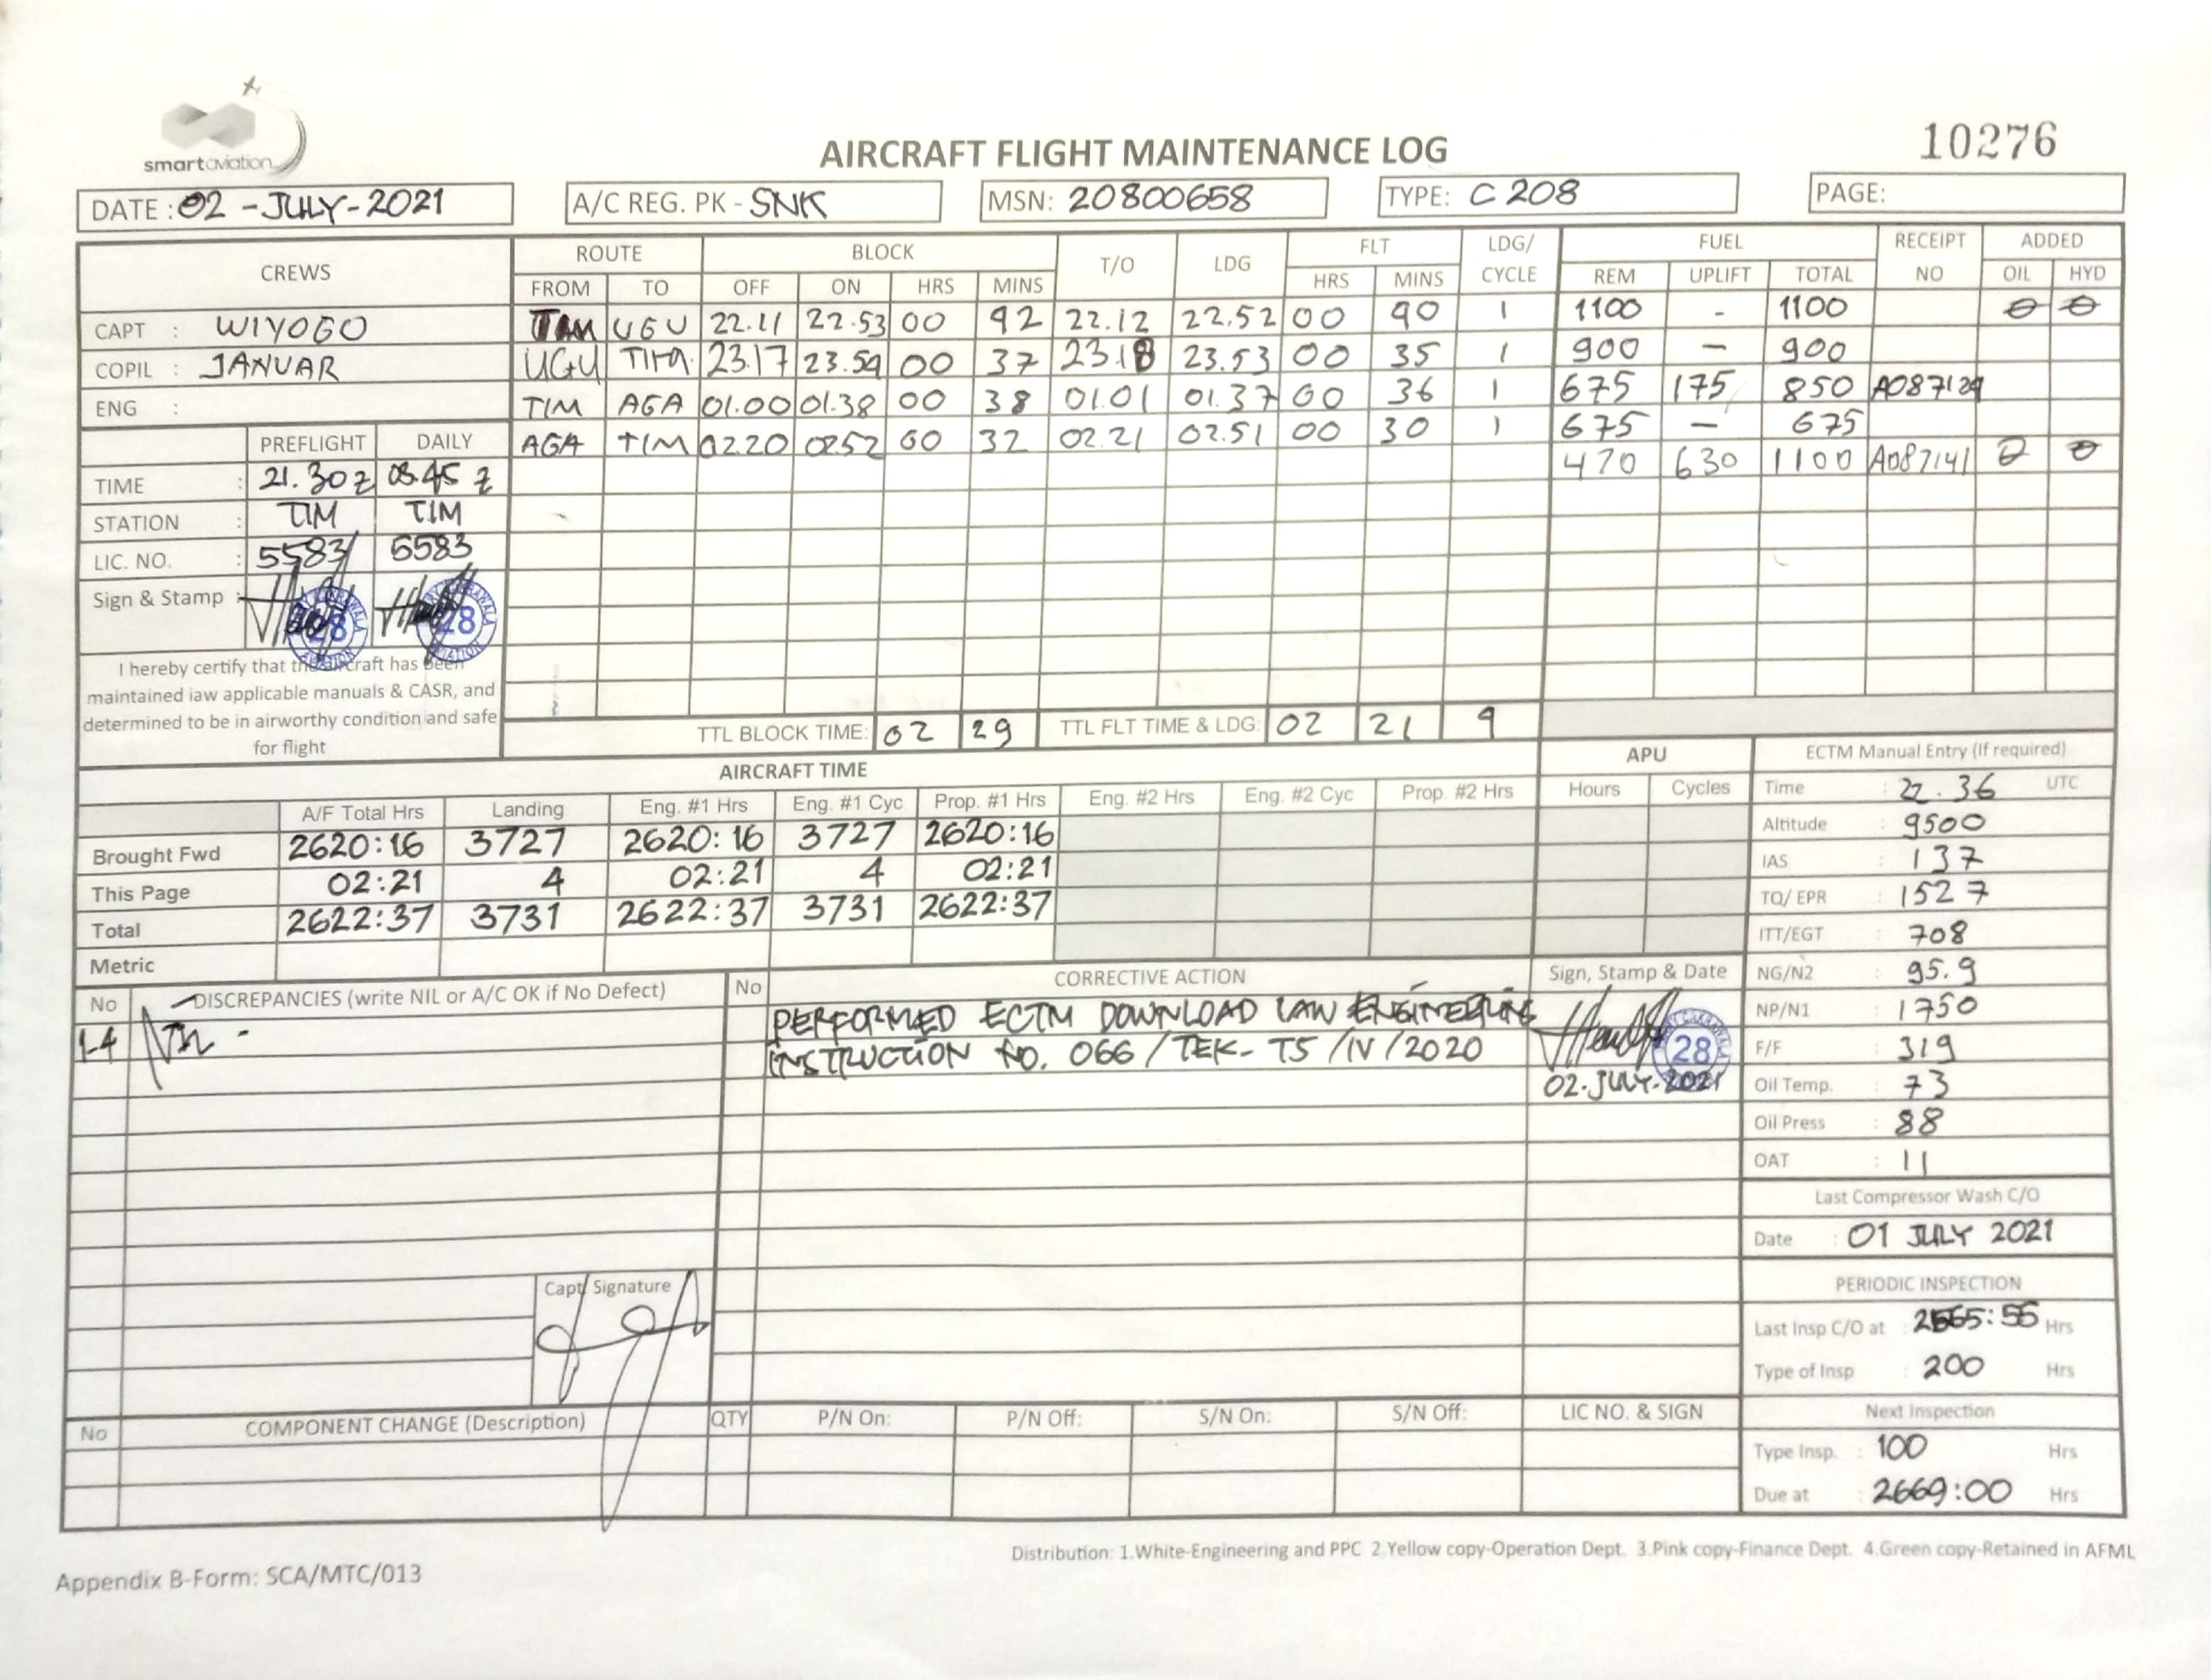 smartaviation
AIRCRAFT FLIGHT MAINTENANCE LOG
10276
DATE : 02 -JULY-2021
A/C REG. PK - SNK
MSN: 20800658
TYPE: C 208
PAGE:
CREWS ROUTE BLOCK T/O LDG FLT LDG/ CYCLE FUEL RECEIPT NO ADDED
FROM TO OFF ON HRS MINS HRS MINS REM UPLIFT TOTAL OIL HYD
CAPT : WIYOGO
TIM UGU 22.11 22.53 00 42 22.12 22.52 00 40 1 1100 - 1100 0 0
COPIL : JANUAR
UGU TIM 23.17 23.54 00 37 23.18 23.53 00 35 1 900 - 900
ENG :
TIM AGA 01.00 01.38 00 38 01.01 01.37 00 36 1 675 175 850 A087124
PREFLIGHT DAILY
AGA TIM 02.20 02.52 00 32 02.21 02.51 00 30 1 675 - 675
470 630 1100 A087141 2 0
TIME : 21.30 z 08.45 z
STATION : TIM TIM
LIC. NO. : 5583 5583
Sign & Stamp : 28 28
I hereby certify that the aircraft has been
maintained iaw applicable manuals & CASR, and
determined to be in airworthy condition and safe
for flight
TTL BLOCK TIME: 02 29 TTL FLT TIME & LDG: 02 21 4
AIRCRAFT TIME APU
A/F Total Hrs Landing Eng. #1 Hrs Eng. #1 Cyc Prop. #1 Hrs Eng. #2 Hrs Eng. #2 Cyc Prop. #2 Hrs Hours Cycles
Brought Fwd 2620:16 3727 2620:16 3727 2620:16
This Page 02:21 4 02:21 4 02:21
Total 2622:37 3731 2622:37 3731 2622:37
Metric
ECTM Manual Entry (If required)
Time : 22.36 UTC
Altitude : 9500
IAS : 137
TQ/ EPR : 1527
ITT/EGT : 708
NG/N2 : 95.9
NP/N1 : 1750
F/F : 319
Oil Temp. : 73
Oil Press : 88
OAT : 11
Last Compressor Wash C/O
Date : 01 JULY 2021
PERIODIC INSPECTION
Last Insp C/O at : 2565:55 Hrs
Type of Insp : 200 Hrs
Next Inspection
Type Insp. : 100 Hrs
Due at : 2669:00 Hrs
No DISCREPANCIES (write NIL or A/C OK if No Defect) No CORRECTIVE ACTION Sign, Stamp & Date
1-4 Nil -
PERFORMED ECTM DOWNLOAD IAW ENGINEERING
INSTRUCTION NO. 066 / TEK- TS /IV /2020
28
02.JULY.2021
Capt Signature
No COMPONENT CHANGE (Description) QTY P/N On: P/N Off: S/N On: S/N Off: LIC NO. & SIGN
Distribution: 1.White-Engineering and PPC 2.Yellow copy-Operation Dept. 3.Pink copy-Finance Dept. 4.Green copy-Retained in AFML
Appendix B-Form: SCA/MTC/013